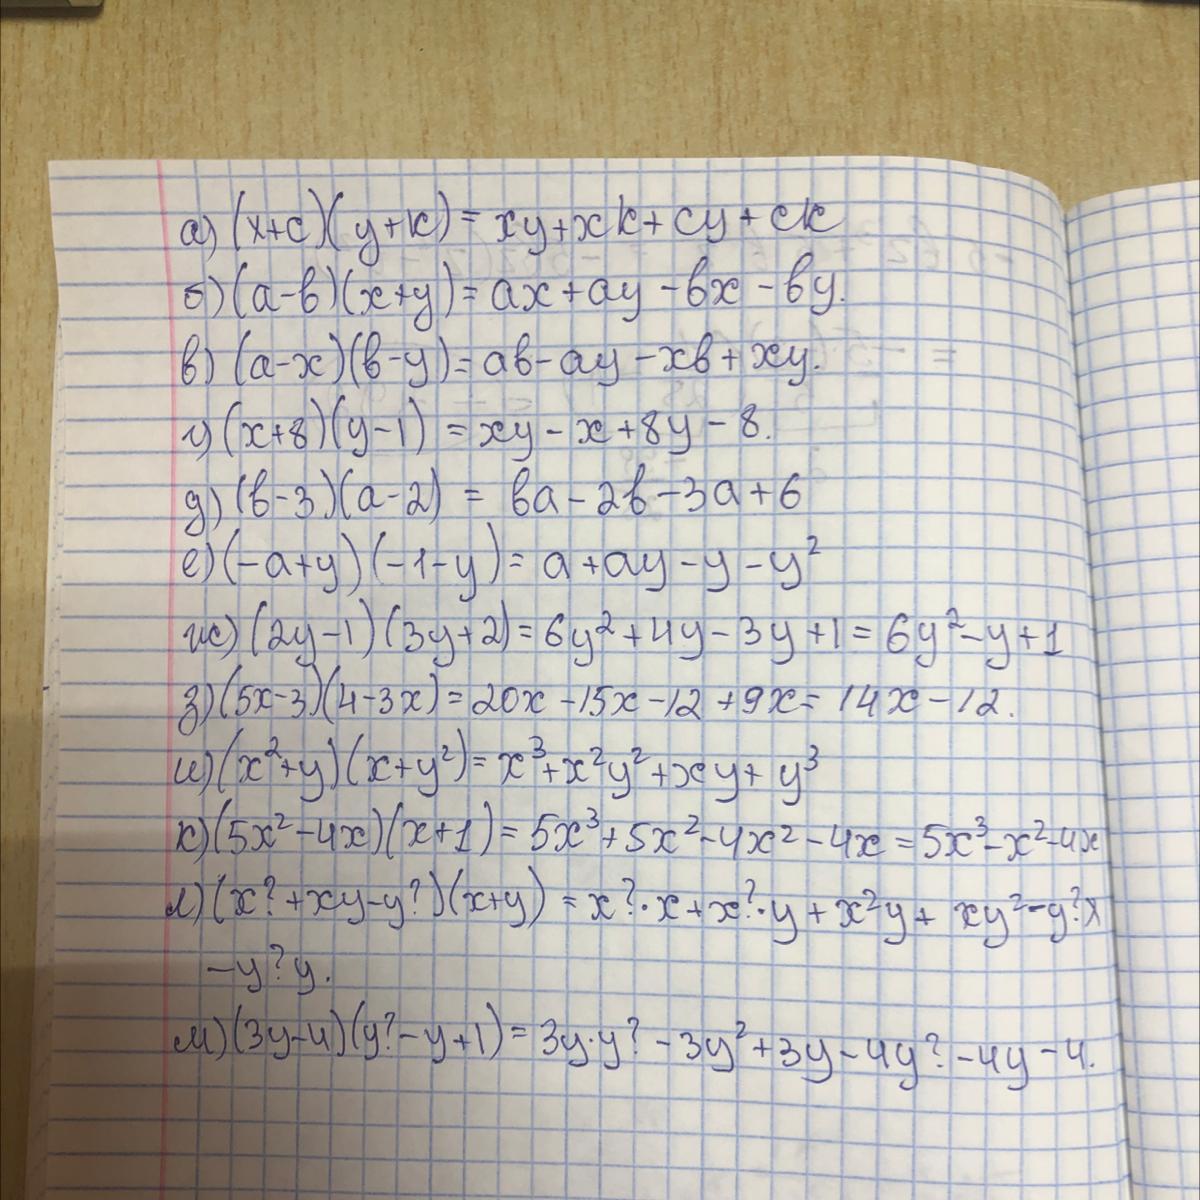 а) (x+c)(y+k) = xy+xk+cy+ck
б) (a-b)(x+y) = ax+ay-bx-by.
в) (a-x)(b-y) = ab-ay-xb+xy.
г) (x+8)(y-1) = xy-x+8y-8.
д) (b-3)(a-2) = ba-2b-3a+6
е) (-a+y)(-1-y) = a+ay-y-y²
ж) (2y-1)(3y+2) = 6y²+4y-3y+1 = 6y²-y+1
з) (5x-3)(4-3x) = 20x-15x-12+9x = 14x-12.
и) (x²+y)(x+y²) = x³+x²y²+xy+y³
к) (5x²-4x)(x+1) = 5x³+5x²-4x²-4x = 5x³-x²-4x
л) (x?+xy-y?)(x+y) = x?·x+x?·y+x²y+xy²-y?x
-y?y.
м) (3y-4)(y?-y+1) = 3y·y?-3y²+3y-4y?-4y-4.